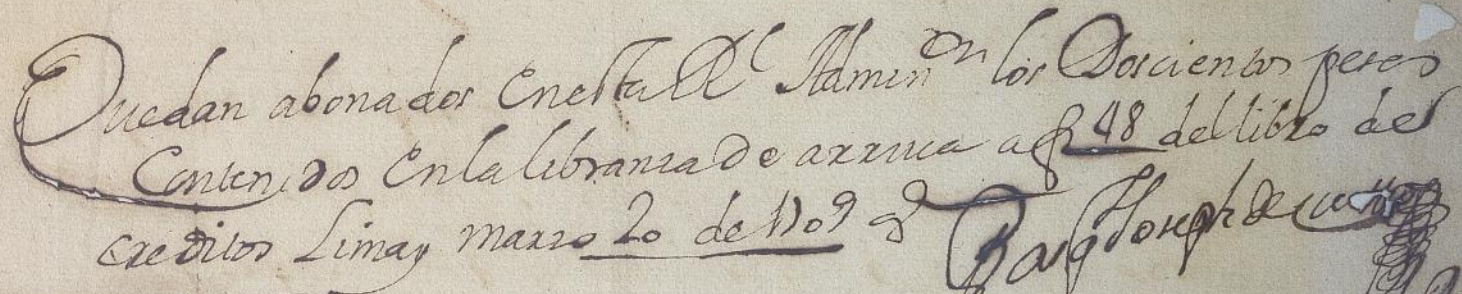 Quedan abonados En esta Rl Admin.on los Doscientos pesos
Contenidos En la libranza de arriva a f 48 del libro de
creditos Lima y Marzo 20 de 1709
Joseph de